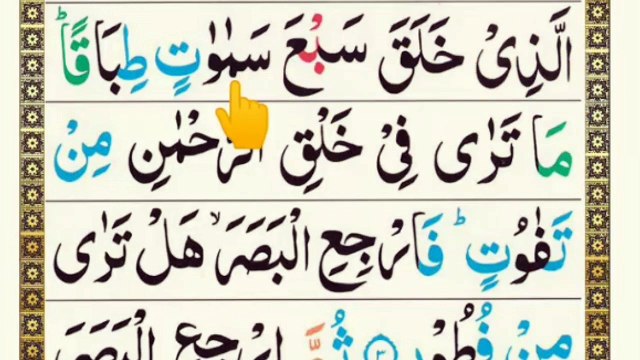 الَّذِیْ خَلَقَ سَبْعَ سَمٰوٰتٍ طِبَاقًا ؕ
مَا تَرٰی فِیْ خَلْقِ الرَّحْمٰنِ مِنْ
تَفٰوُتٍ ؕ فَارْجِعِ الْبَصَرَ ۙ هَلْ تَرٰی
مِنْ فُطُوْرٍ ﴿۳﴾ ثُمَّ ارْجِعِ الْبَصَرَ